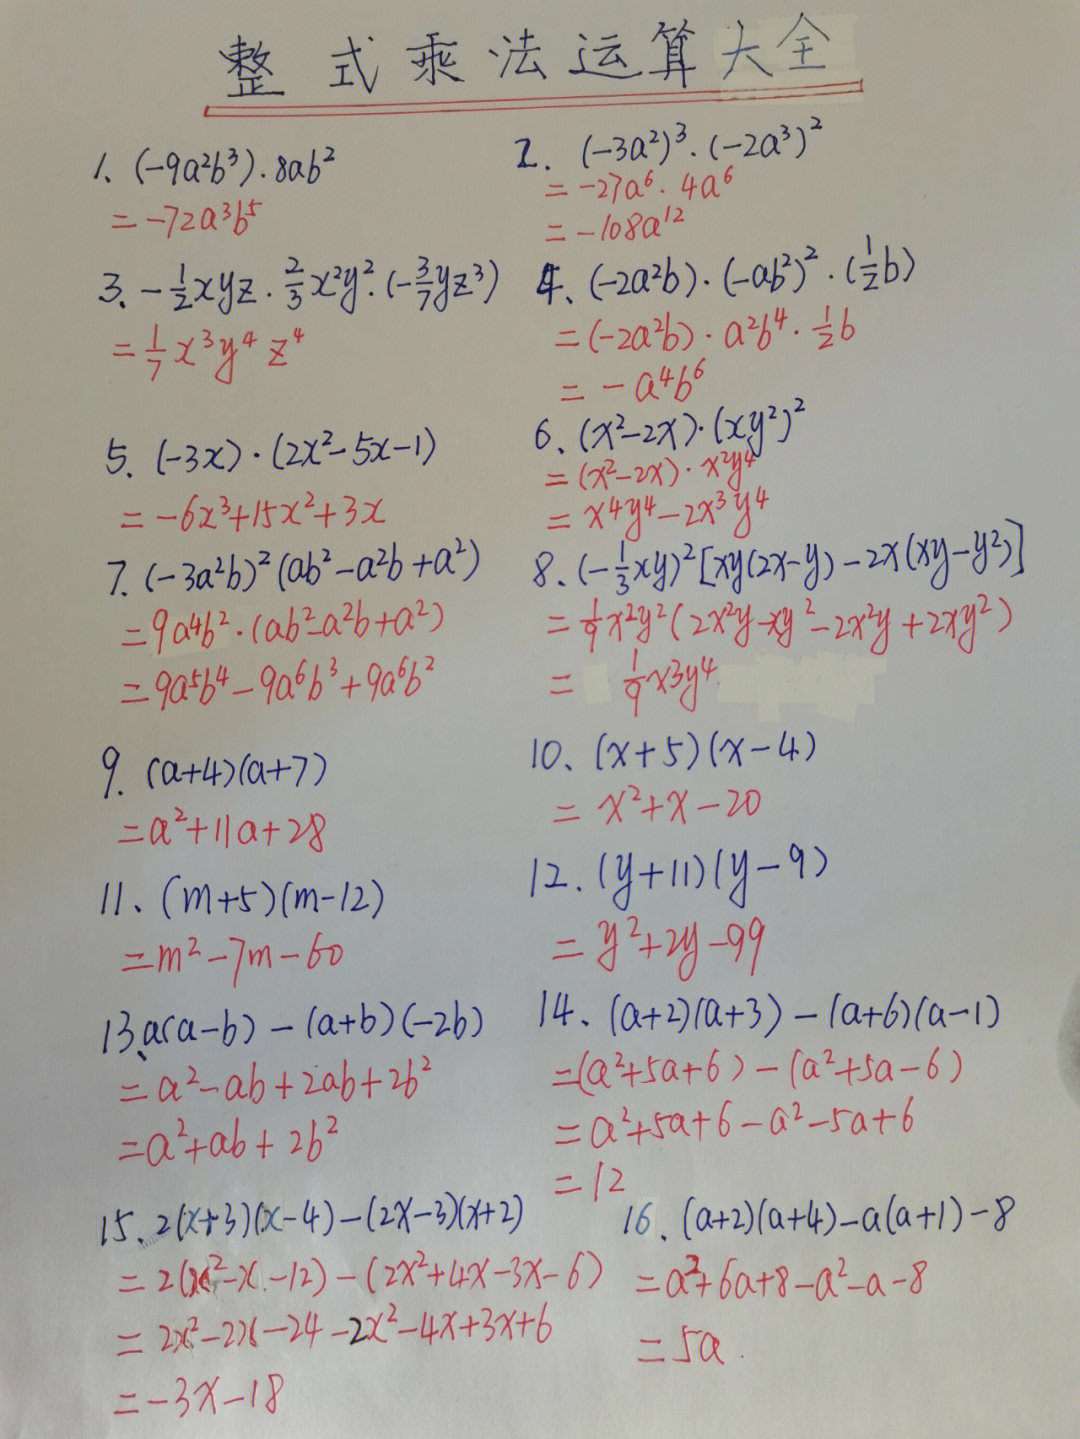 整式乘法运算大全
1、(-9a²b³)·8ab²
=-72a³b⁵
2、(-3a²)³·(-2a³)²
=-27a⁶·4a⁶
=-108a¹²
3、-1/2xyz·2/3x²y²·(-3/7yz³)
=1/7x³y⁴z⁴
4、(-2a²b)·(-ab²)²·(1/2b)
=(-2a²b)·a²b⁴·1/2b
=-a⁴b⁶
5、(-3x)·(2x²-5x-1)
=-6x³+15x²+3x
6、(x²-2x)·(xy²)²
=(x²-2x)·x²y⁴
=x⁴y⁴-2x³y⁴
7、(-3a²b)²(ab²-a²b+a²)
=9a⁴b²·(ab²-a²b+a²)
=9a⁵b⁴-9a⁶b³+9a⁶b²
8、(-1/3xy)²[xy(2x-y)-2x(xy-y²)]
=1/9x²y²(2x²y-xy²-2x²y+2xy²)
=1/9x³y⁴
9、(a+4)(a+7)
=a²+11a+28
10、(x+5)(x-4)
=x²+x-20
11、(m+5)(m-12)
=m²-7m-60
12、(y+11)(y-9)
=y²+2y-99
13、a(a-b)-(a+b)(-2b)
=a²-ab+2ab+2b²
=a²+ab+2b²
14、(a+2)(a+3)-(a+6)(a-1)
=(a²+5a+6)-(a²+5a-6)
=a²+5a+6-a²-5a+6
=12
15、2(x+3)(x-4)-(2x-3)(x+2)
=2(x²-x-12)-(2x²+4x-3x-6)
=2x²-2x-24-2x²-4x+3x+6
=-3x-18
16、(a+2)(a+4)-a(a+1)-8
=a²+6a+8-a²-a-8
=5a